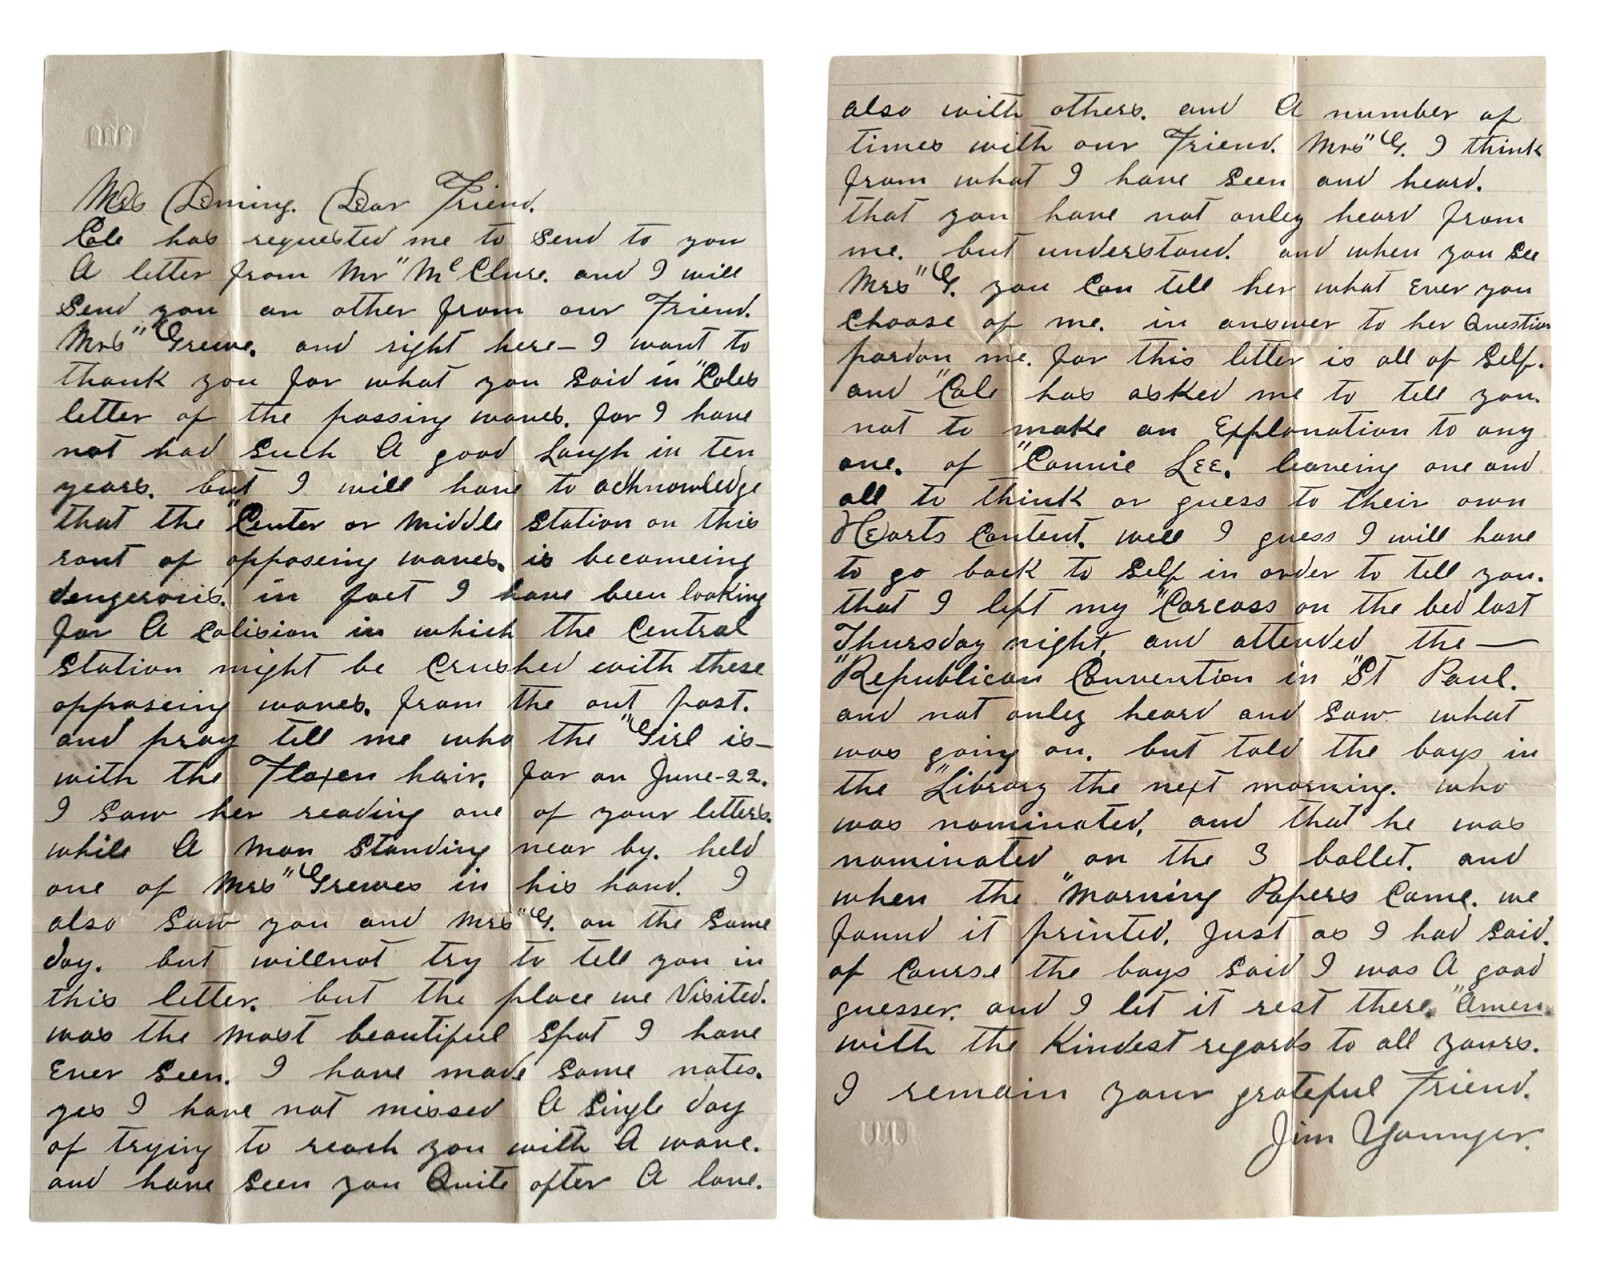 Mrs Deming. Dear Friend.
Cole has requested me to send to you
A letter from Mr" McClure. and I will
send you an other from our Friend.
Mrs" Grewe. and right here— I want to
thank you for what you said in "Coles
letter of the passing waves. for I have
not had such A good Laugh in ten
years. but I will have to acknowledge
that the "Center or middle station on this
rout of opposeing waves. is becomeing
dengerous. in fact I have been looking
for A Colision in which the Central
Station might be Crushed with these
opposeing waves. from the out Post.
and pray tell me who the "Girl is—
with the Flaxen hair. for on June-22.
I saw her reading one of your letters.
while A man standing near by. held
one of Mrs" Grewes in his hand. I
also saw you and Mrs" G. on the same
day. but willnot try to tell you in
this letter. but the place we Visited.
was the most beautiful spot I have
Ever seen. I have made some notes.
yes I have not missed A single day
of trying to reach you with A wave.
and have seen you Quite often A lone.
also with others. and A number of
times with our Friend. Mrs" G. I think
from what I have seen and heard.
that you have not onley heard from
me. but understand. and when you see
Mrs" G. you Can tell her what Ever you
Choose of me. in answer to her Question
pardon me. for this letter is all of self.
and "Cole has asked me to tell you.
not to make an Explanation to any
one. of "Connie LEE. leaveing one and
all to think or guess to their own
HEarts Content. well I guess I will have
to go back to self in order to tell you.
that I left my "Carcass on the bed last
Thursday night, and attended the —
"Republican Convention in "St Paul.
and not onley heard and saw what
was going on. but told the boys in
the "Library the next morning. who
was nominated, and that he was
nominated on the 3 ballet. and
when the "Morning Papers Came. we
found it printed. Just as I had said.
of Course the boys said I was A good
guesser. and I let it rest there. "Amen.
with the Kindest regards to all yours.
I remain your grateful Friend.
Jim Younger.